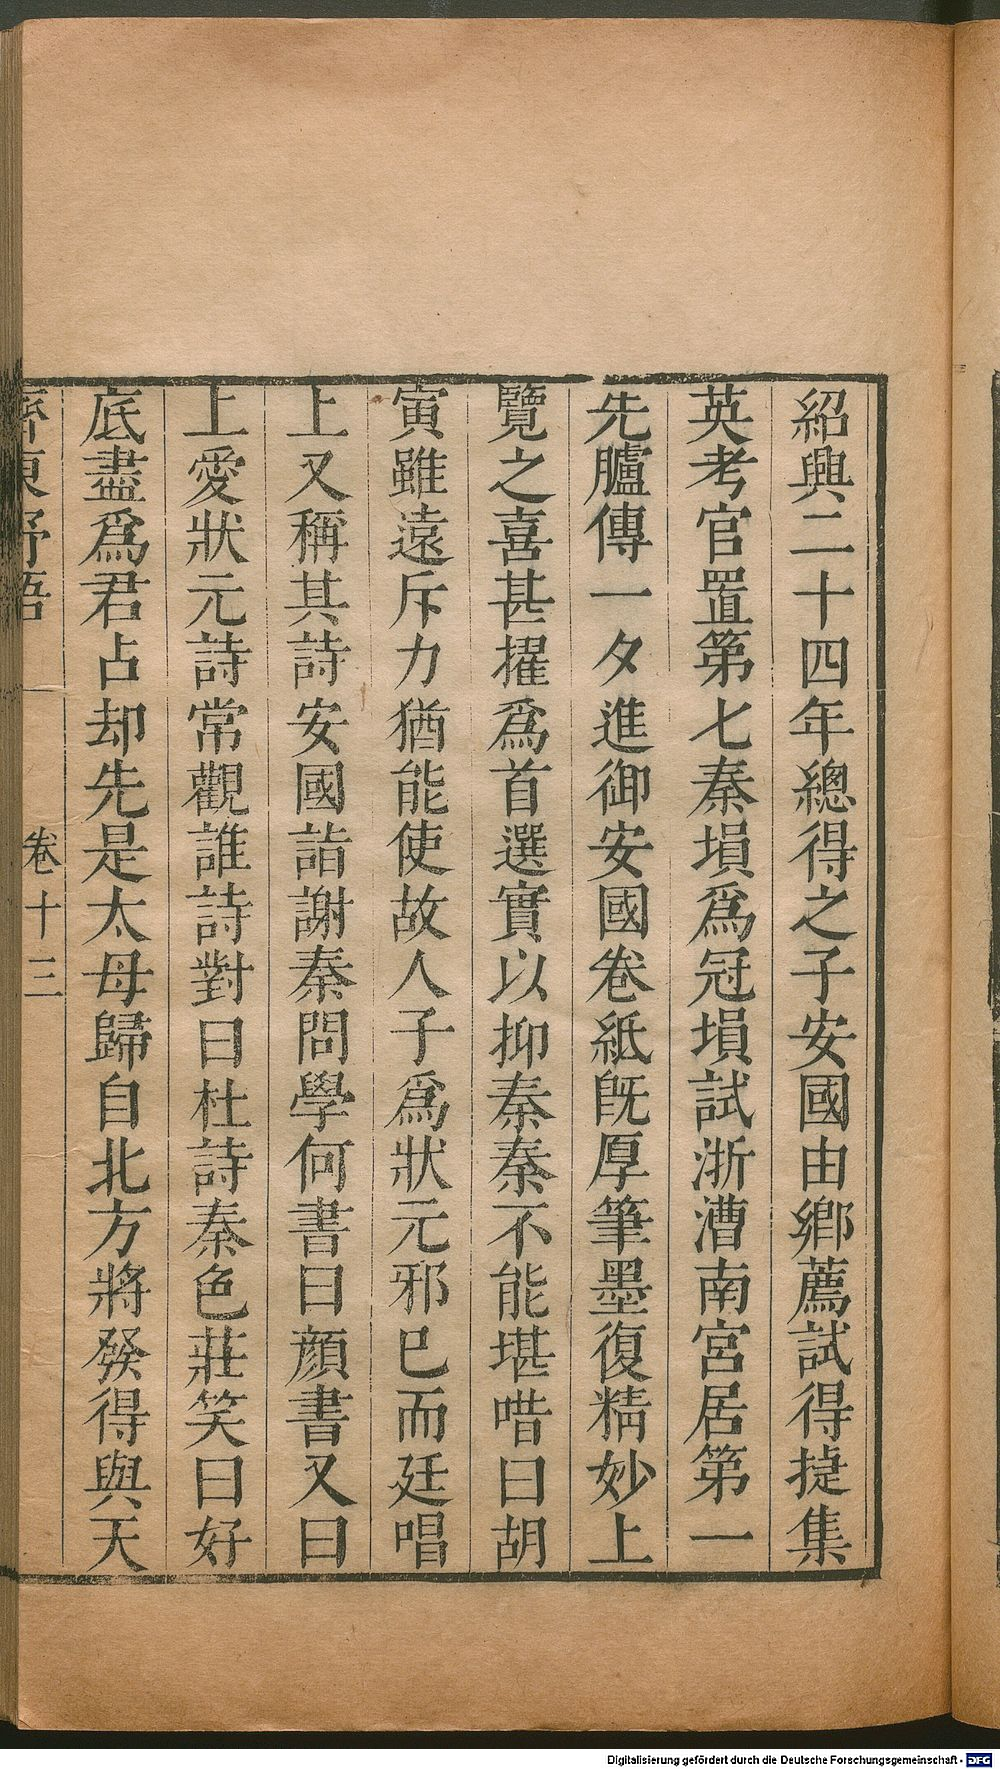 紹興二十四年總得之子安國由鄉薦試得㨗集
英考官置第七秦塤爲冠塤試浙漕南宮居第一
先臚傳一夕進御安國卷紙旣厚筆墨復精妙上
覽之喜甚擢爲首選實以抑秦秦不能堪唶曰胡
寅雖遠斥力猶能使故人子爲狀元邪已而廷唱
上又稱其詩安國詣謝秦問學何書曰顔書又曰
上愛狀元詩常觀誰詩對曰杜詩秦色莊笑曰好
底盡爲君占却先是太母歸自北方將發得與天
齊東野語 卷十三
Digitalisierung gefördert durch die Deutsche Forschungsgemeinschaft - DFG